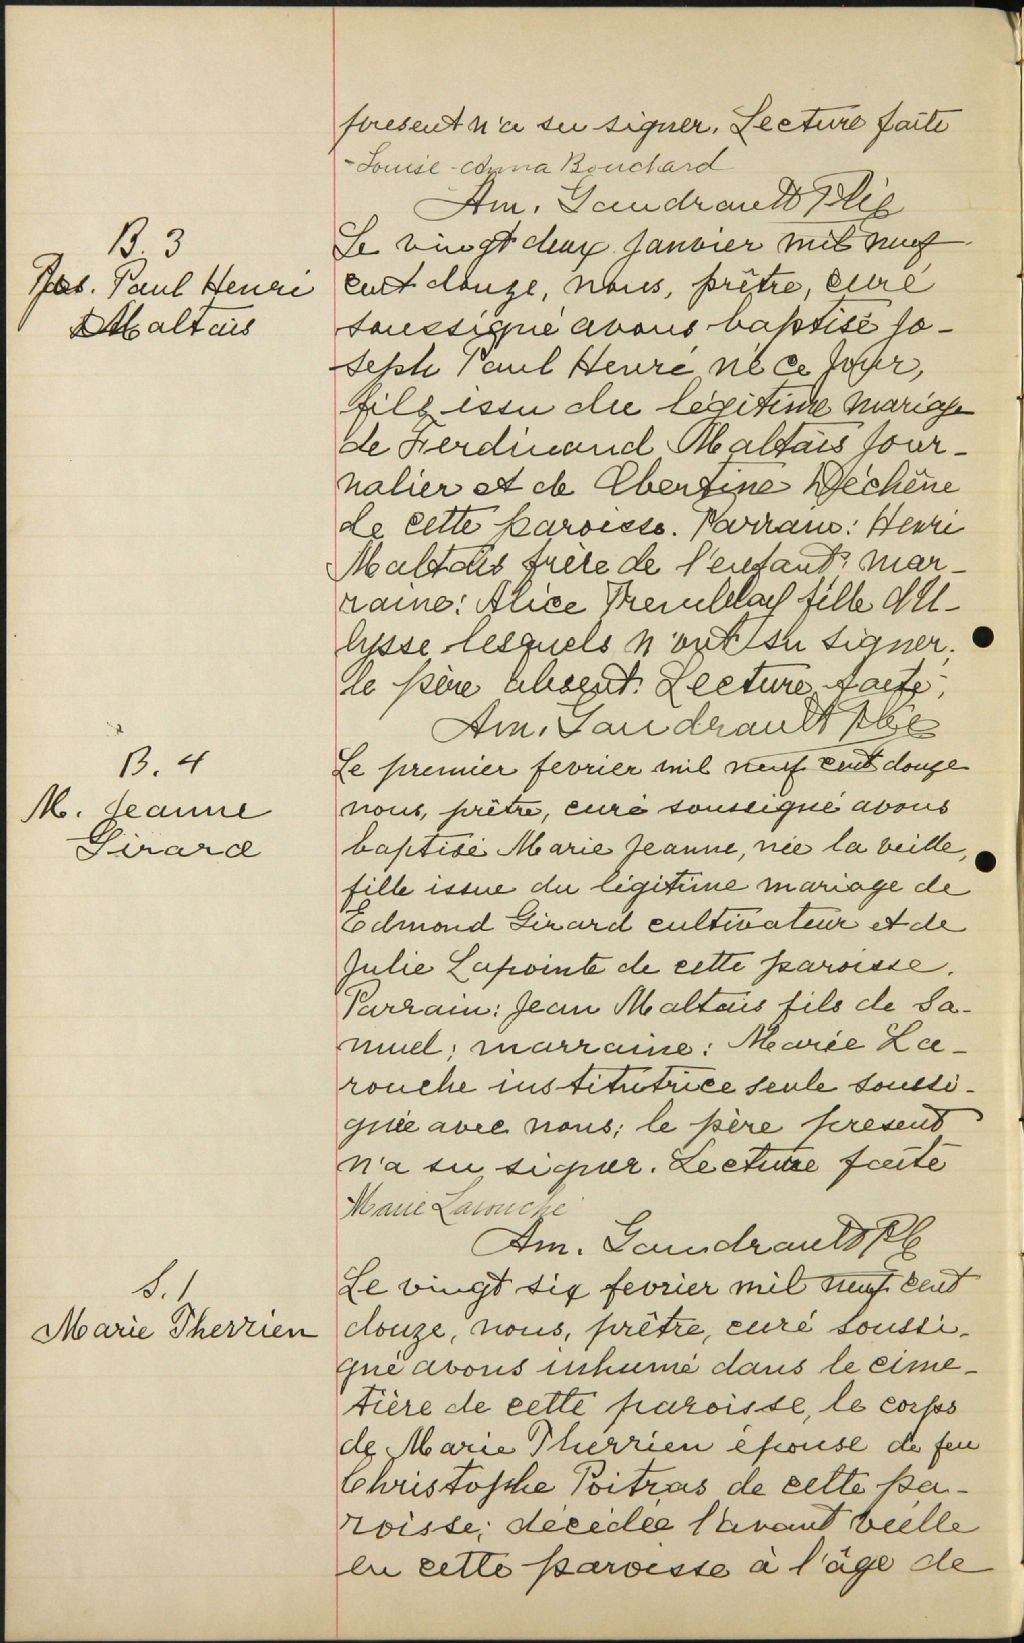 present n'a su signer. Lecture faite
Louise-Anna Bouchard
Am. Gaudreault Ptre
B. 3
Jos. Paul Henri
Maltais
Le vingt deux janvier mil neuf
cent douze, nous, prêtre, curé
soussigné avons baptisé Jo-
seph Paul Henri, né ce jour,
fils issu du légitime mariage
de Ferdinand Maltais jour-
nalier et de Albertine Déchêne
de cette paroisse. Parrain: Henri
Maltais frère de l'enfant; mar-
raine: Alice Tremblay fille d'U-
lysse lesquels n'ont su signer;
le père absent. Lecture faite;
Am. Gaudreault Ptre
B. 4
M. Jeanne
Girard
Le premier fevrier mil neuf cent douze
nous, prêtre, curé soussigné avons
baptisé Marie Jeanne, née la veille,
fille issue du légitime mariage de
Edmond Girard cultivateur et de
Julie Lapointe de cette paroisse.
Parrain: Jean Maltais fils de Sa-
muel; marraine: Marie La-
rouche institutrice seule soussi-
gnée avec nous; le père present
n'a su signer. Lecture faite
Marie Larouche
Am. Gaudreault
S. 1
Marie Therrien
Le vingt six fevrier mil neuf cent
douze, nous, prêtre, curé soussi-
gné avons inhumé dans le cime-
tière de cette paroisse, le corps
de Marie Therrien épouse de feu
Christophe Poitras de cette pa-
roisse; décédée l'avant veille
en cette paroisse à l'âge de